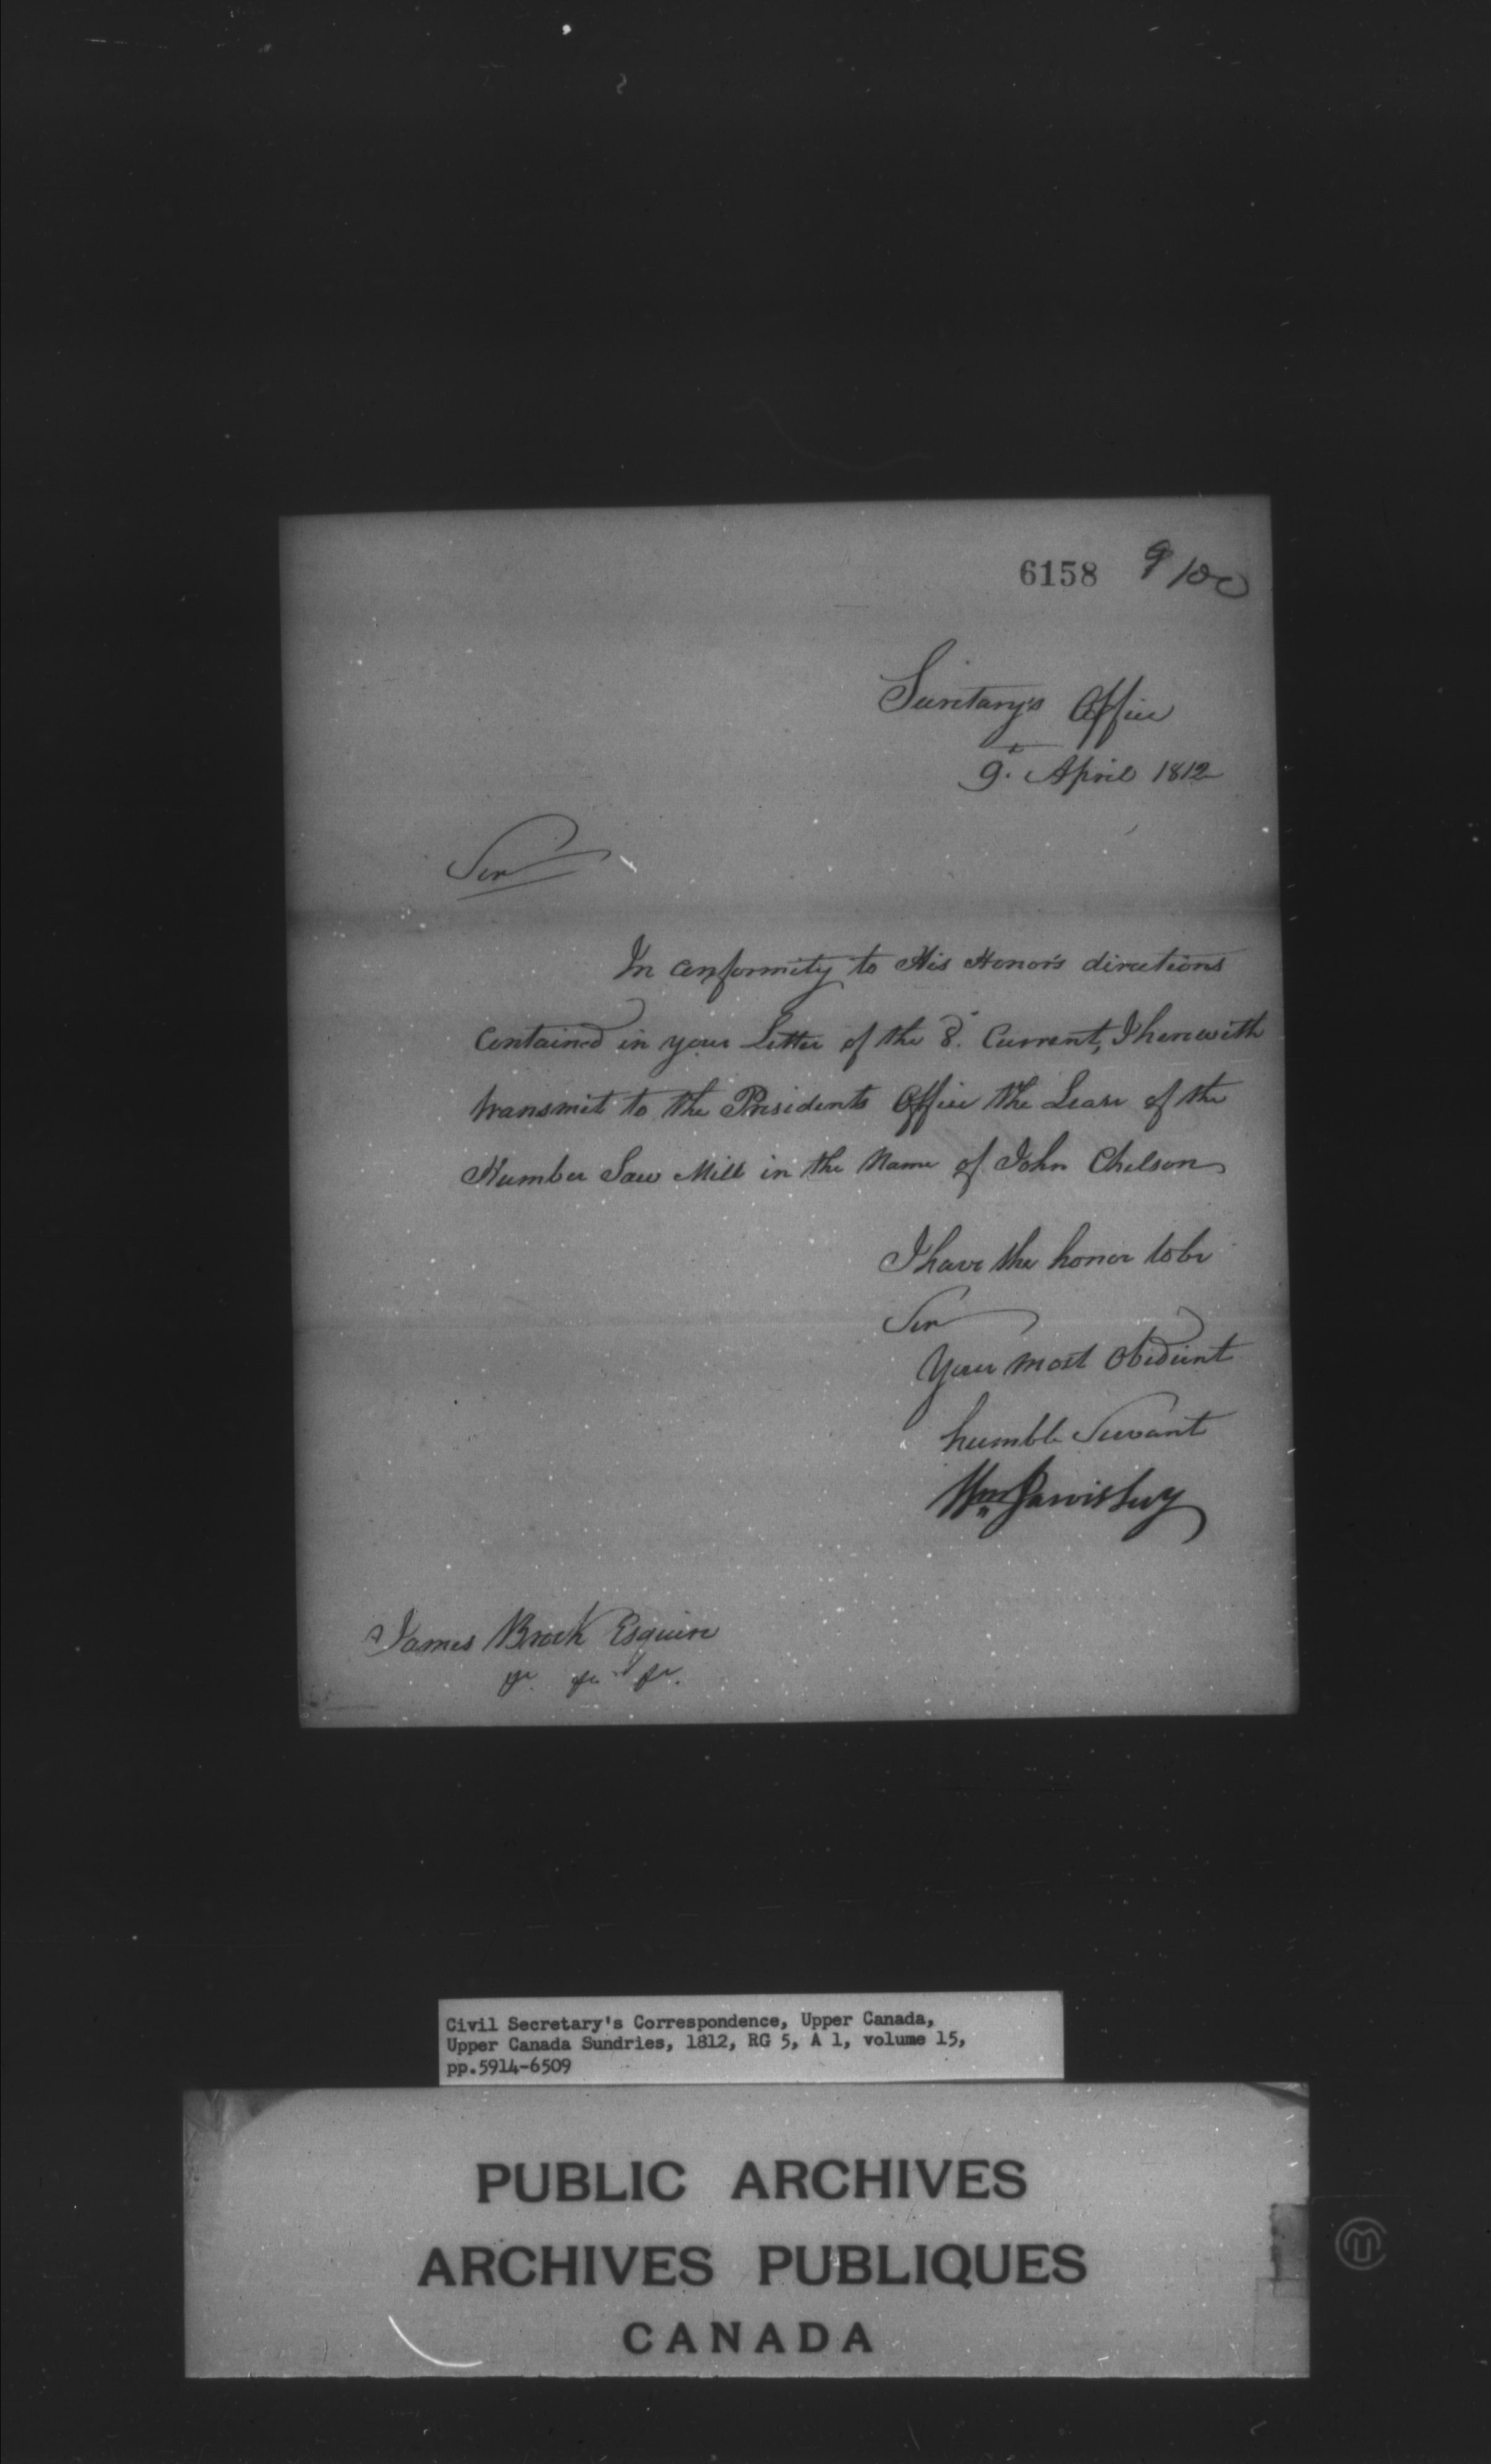 6158 9/100
Secretary's Office
9. April 1812
Sir
In conformity to His Honor's directions
contained in your Letter of the 8. Current, I herewith
transmit to the Presidents Office the Lease of the
Humber Saw Mill in the Name of John Chelson
I have the honor to be
Sir
Your most Obedient
humble Servant
Wm Jarvis Secy
James Brock Esquire
Civil Secretary's Correspondence, Upper Canada,
Upper Canada Sundries, 1812, RG 5, A 1, volume 15,
pp.5914-6509
PUBLIC ARCHIVES
ARCHIVES PUBLIQUES
CANADA